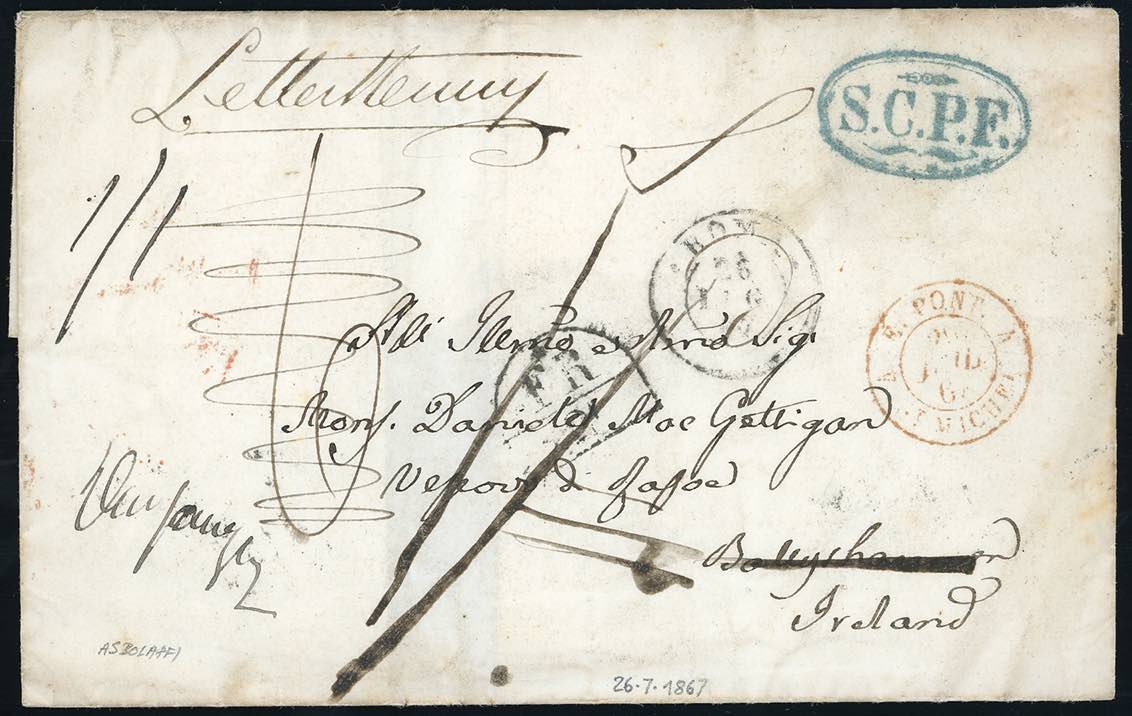 LetterKenny
S.C.P.F.
1/1
ROM
26
LUG
E. PONT.
JUIL
67
ST MICHEL
All Illmo e Rmo Sig
FR
Mons. Daniele Mac Gettigan
Vescovo di Rafoe
Ballyshannon
Ireland
ASBOLAFFI
26.7.1867